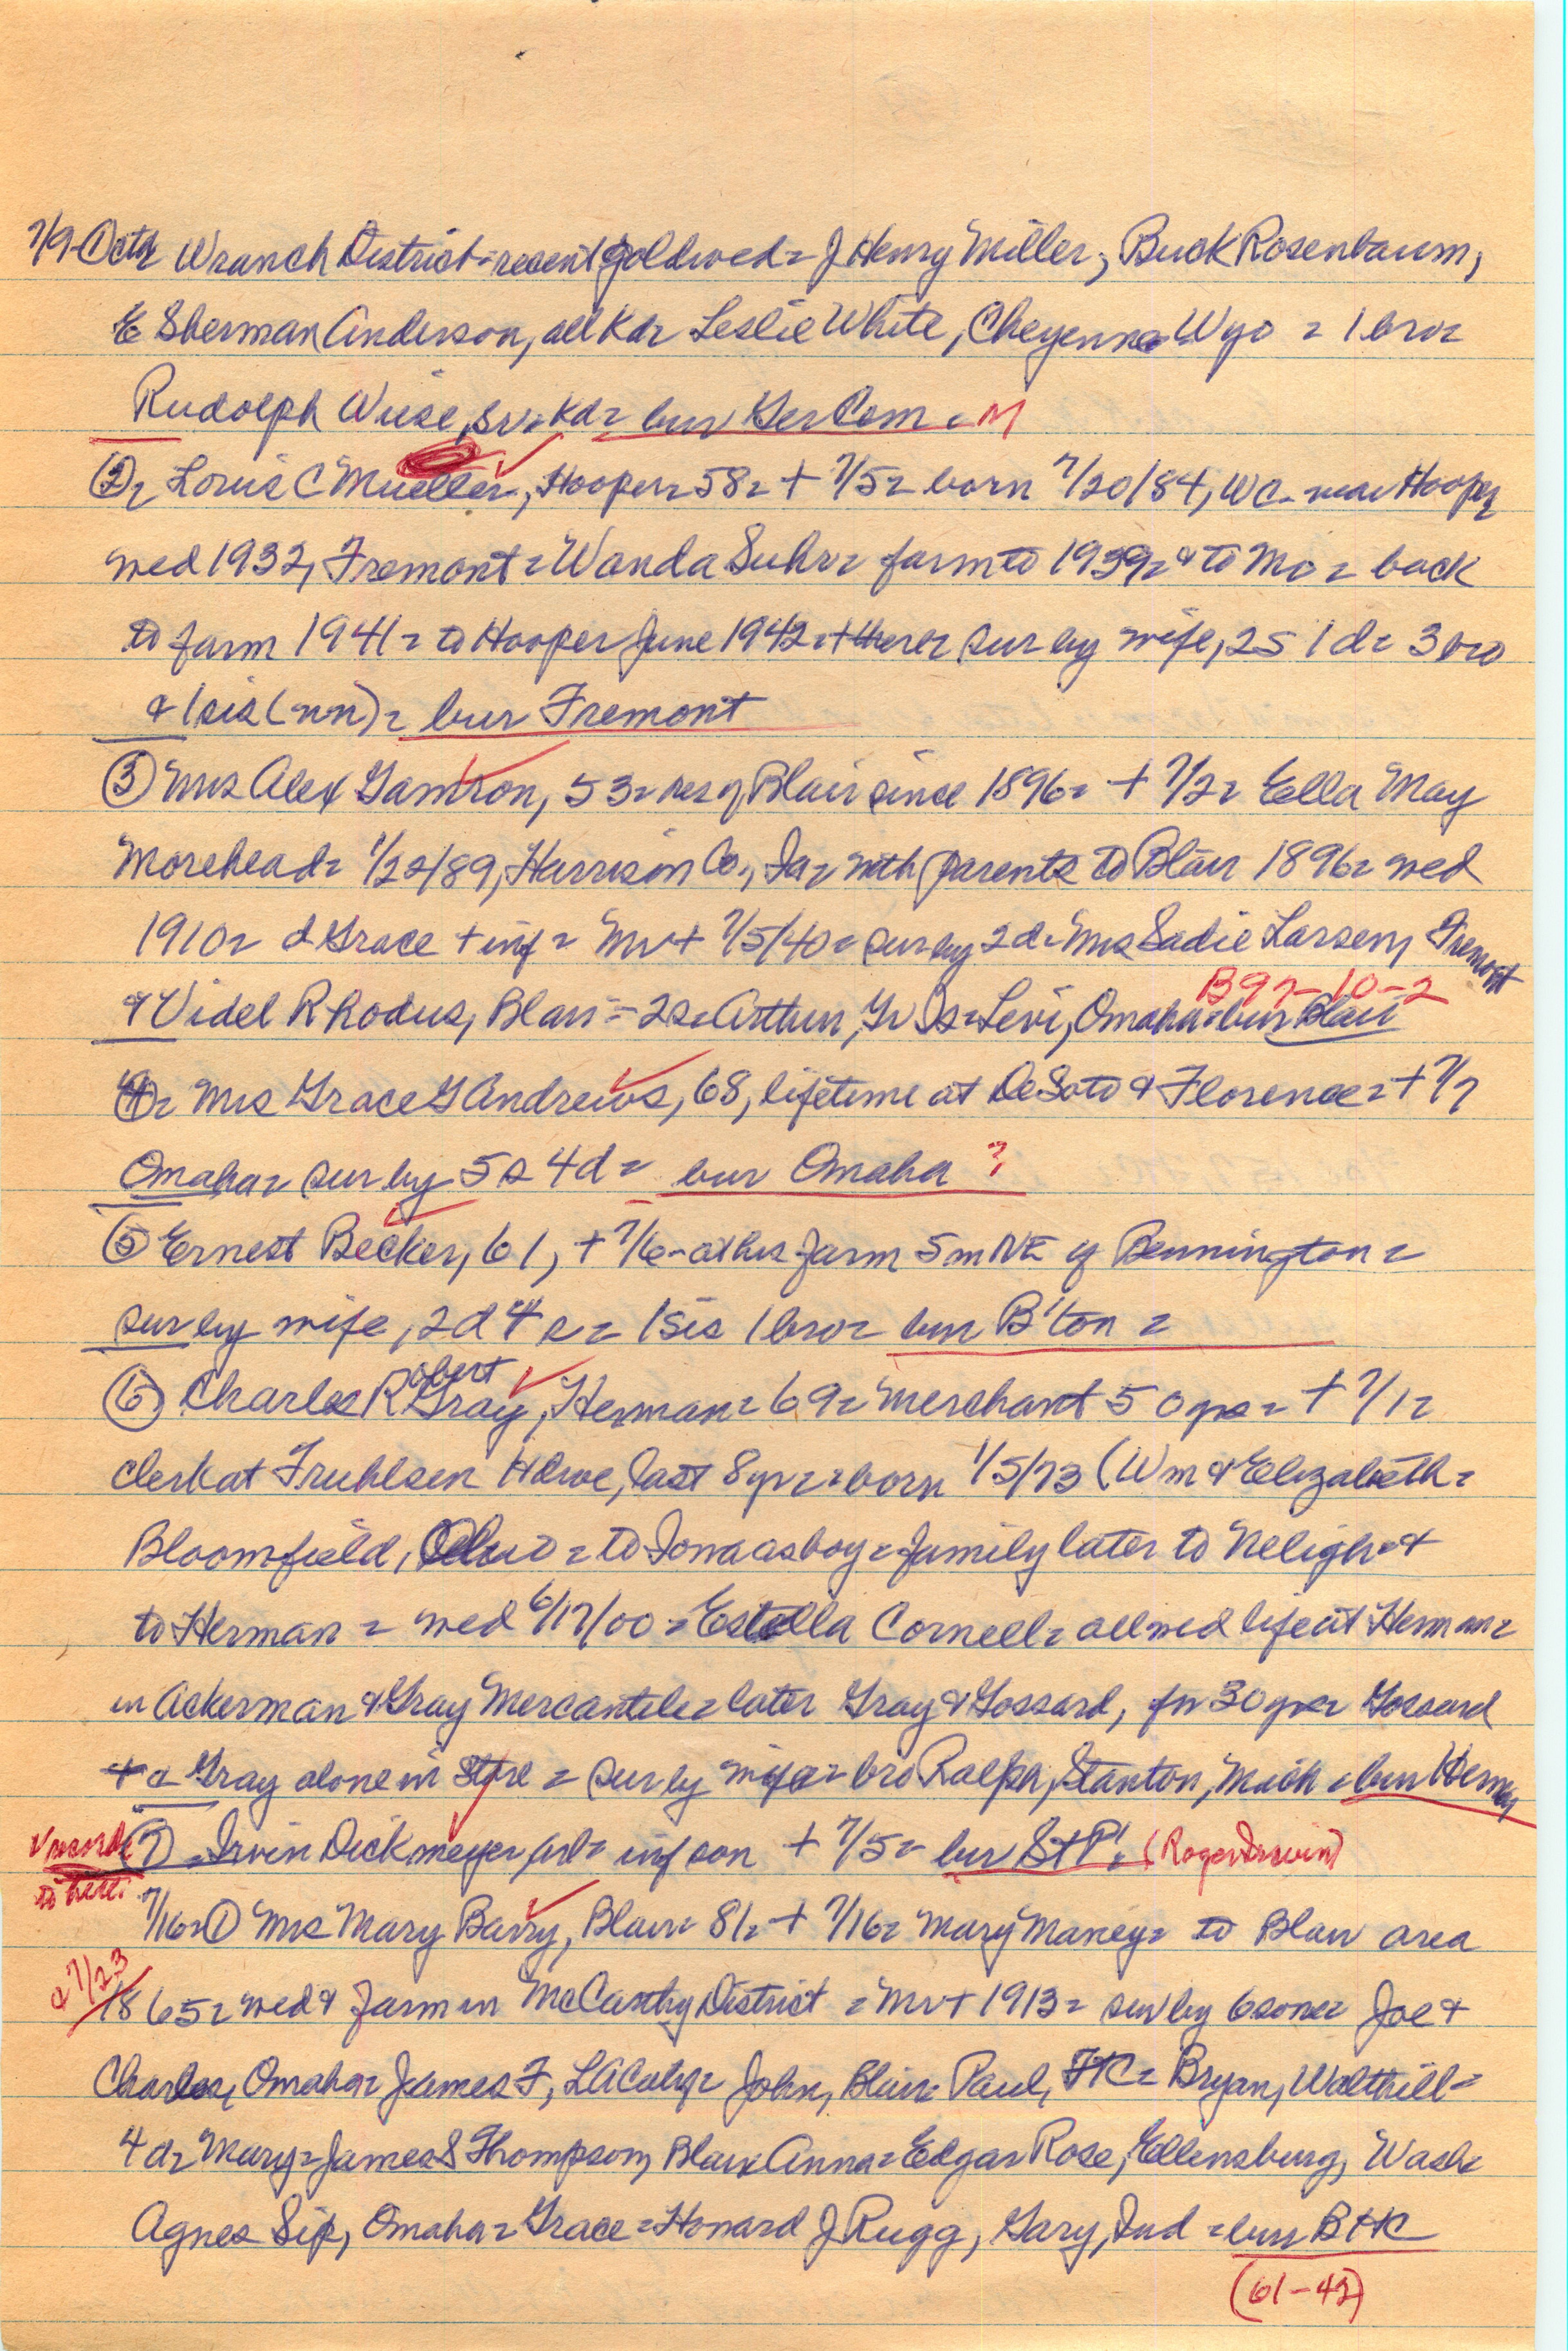 7/9-① ctd Wranch District = recent goldwed = J Henry Miller, Buck Rosenbaum,
E Sherman Anderson, all Kd = Leslie White, Cheyenne Wyo = 1 bro =
Rudolph Wiese, Sr = Kd = bur Ger Cem = M
② = Louis C Mueller, Hooper = 58 = + 7/5 = born 7/20/84, WC - near Hooper
wed 1932, Fremont = Wanda Suhr = farm to 1939 = & to Mo = back
to farm 1941 = to Hooper June 1942 = + there = sur by wife, 2s 1d = 3 bro
& 1 sis (nn) = bur Fremont
③ Mrs Alex Gamron, 53 = res of Blair since 1896 = + 7/2 = Ella May
Morehead = 1/22/89, Harrison Co., Ia = with parents to Blair 1896 = wed
1910 = d Grace + inf = Mr + 7/5/40 = sur by 2d = Mrs Sadie Larsen, Fremont
& Videl Rhodus, Blair = 2s = Arthur, Gr Is = Levi, Omaha = bur Blair
B97-10-2
④ = Mrs Grace G Andrews, 68, lifetime at DeSoto & Florence = + 7/7
Omaha = sur by 5s 4d = bur Omaha ?
⑤ Ernest Becker, 61, + 7/6 - at his farm 5 m NE of Bennington =
sur by wife, 2d 4 s = 1 sis 1 bro = bur B'ton =
⑥ Charles Robert Gray, Herman = 69 = merchant 50 yrs = + 7/1 =
clerk at Truhlsen Hdwe, last 8 yr = born 1/5/73 (Wm & Elizabeth =
Bloomfield, Ohio = to Iowa as boy = family later to Neligh = &
to Herman = wed 6/17/00 = Estella Cornell = all wed life at Herman =
in Ackerman & Gray Mercantile = later Gray & Gossard, for 30 yrs = Gossard
+ & Gray alone in store = sur by wife = bro Ralph, Stanton, Mich = bur Herman
⑦ = Irvin Dickmeyer, Arl = inf son + 7/5 = bur St P! (Roger Irwin)
√ records
to here.
7/16 = ① Mrs Mary Barry, Blair = 81 = + 7/16 = Mary Maney = to Blair area
& 7/23
1865 = wed & farm in McCarthy District = Mr + 1913 = sur by 6 sons = Joe &
Charles, Omaha = James F, LA Caly = John, Blair = Paul, FtC = Bryan, Walthill =
4d = Mary = James S Thompson, Blair = Anna = Edgar Rose, Ellensburg, Wash =
Agnes Sip, Omaha = Grace = Howard J Rugg, Gary, Ind = bur BHC
(61-42)